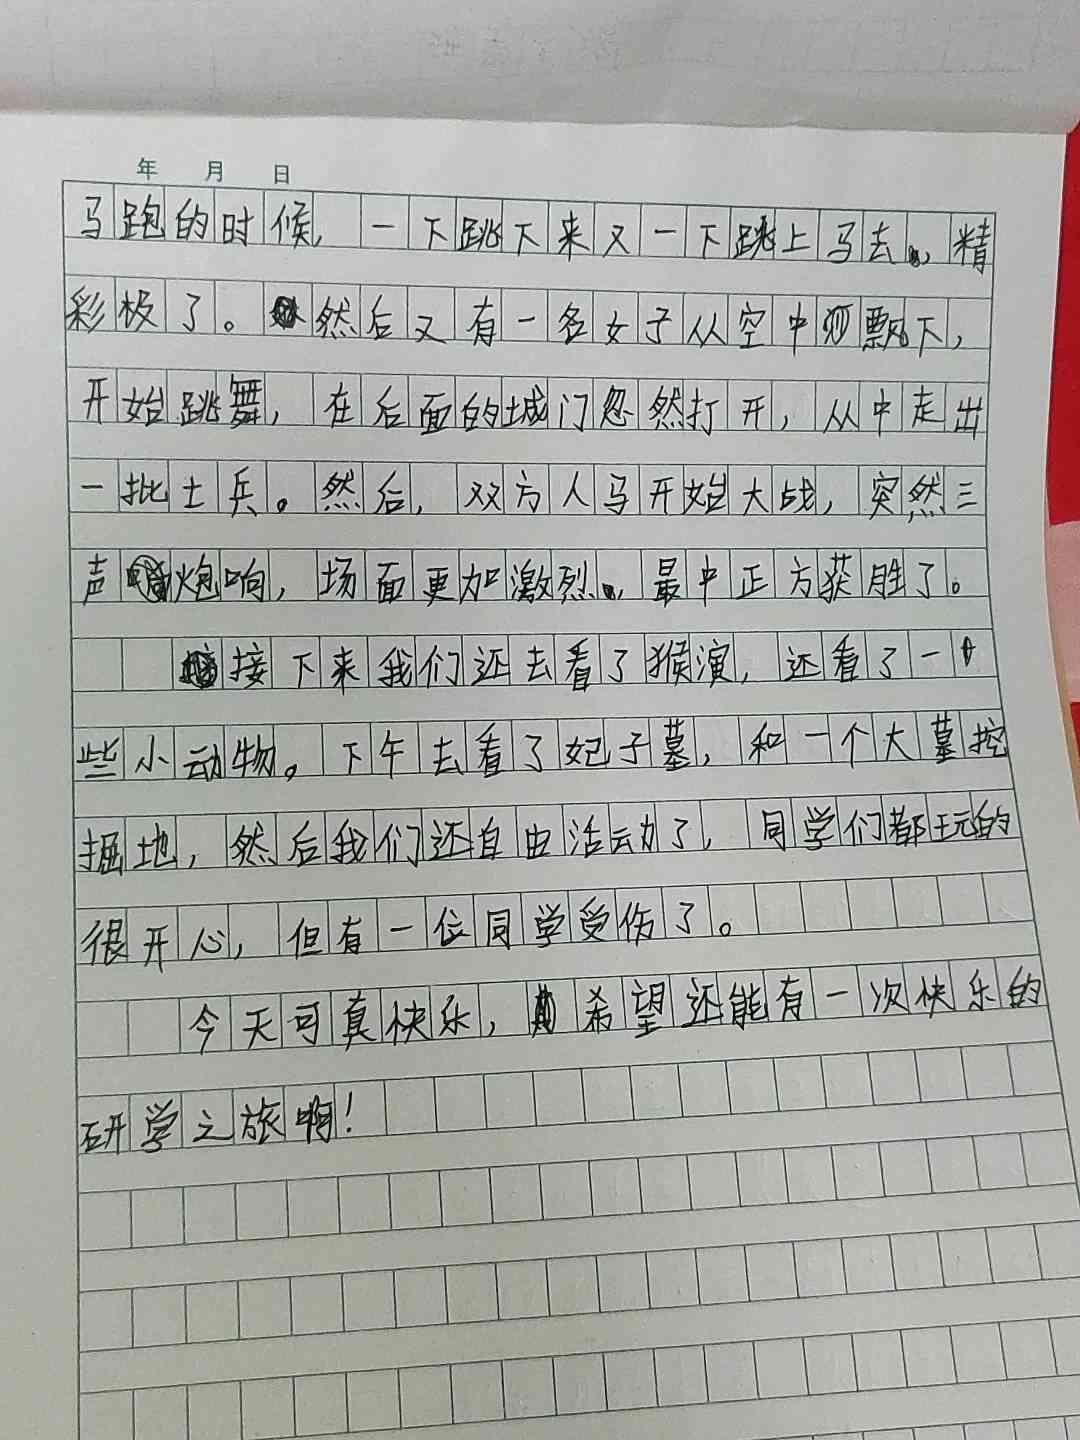 年 月 日
马跑的时候,一下跳下来又一下跳上马去,精
彩极了。然后又有一名女子从空中飘下,
开始跳舞,在后面的城门忽然打开,从中走出
一批士兵。然后,双方人马开始大战,突然三
声炮响,场面更加激烈,最中正方获胜了。
接下来我们还去看了猴演,还看了一
些小动物。下午去看了妃子墓,和一个大墓挖
掘地,然后我们还自由活动了,同学们都玩的
很开心,但有一位同学受伤了。
今天可真快乐,希望还能有一次快乐的
研学之旅啊!